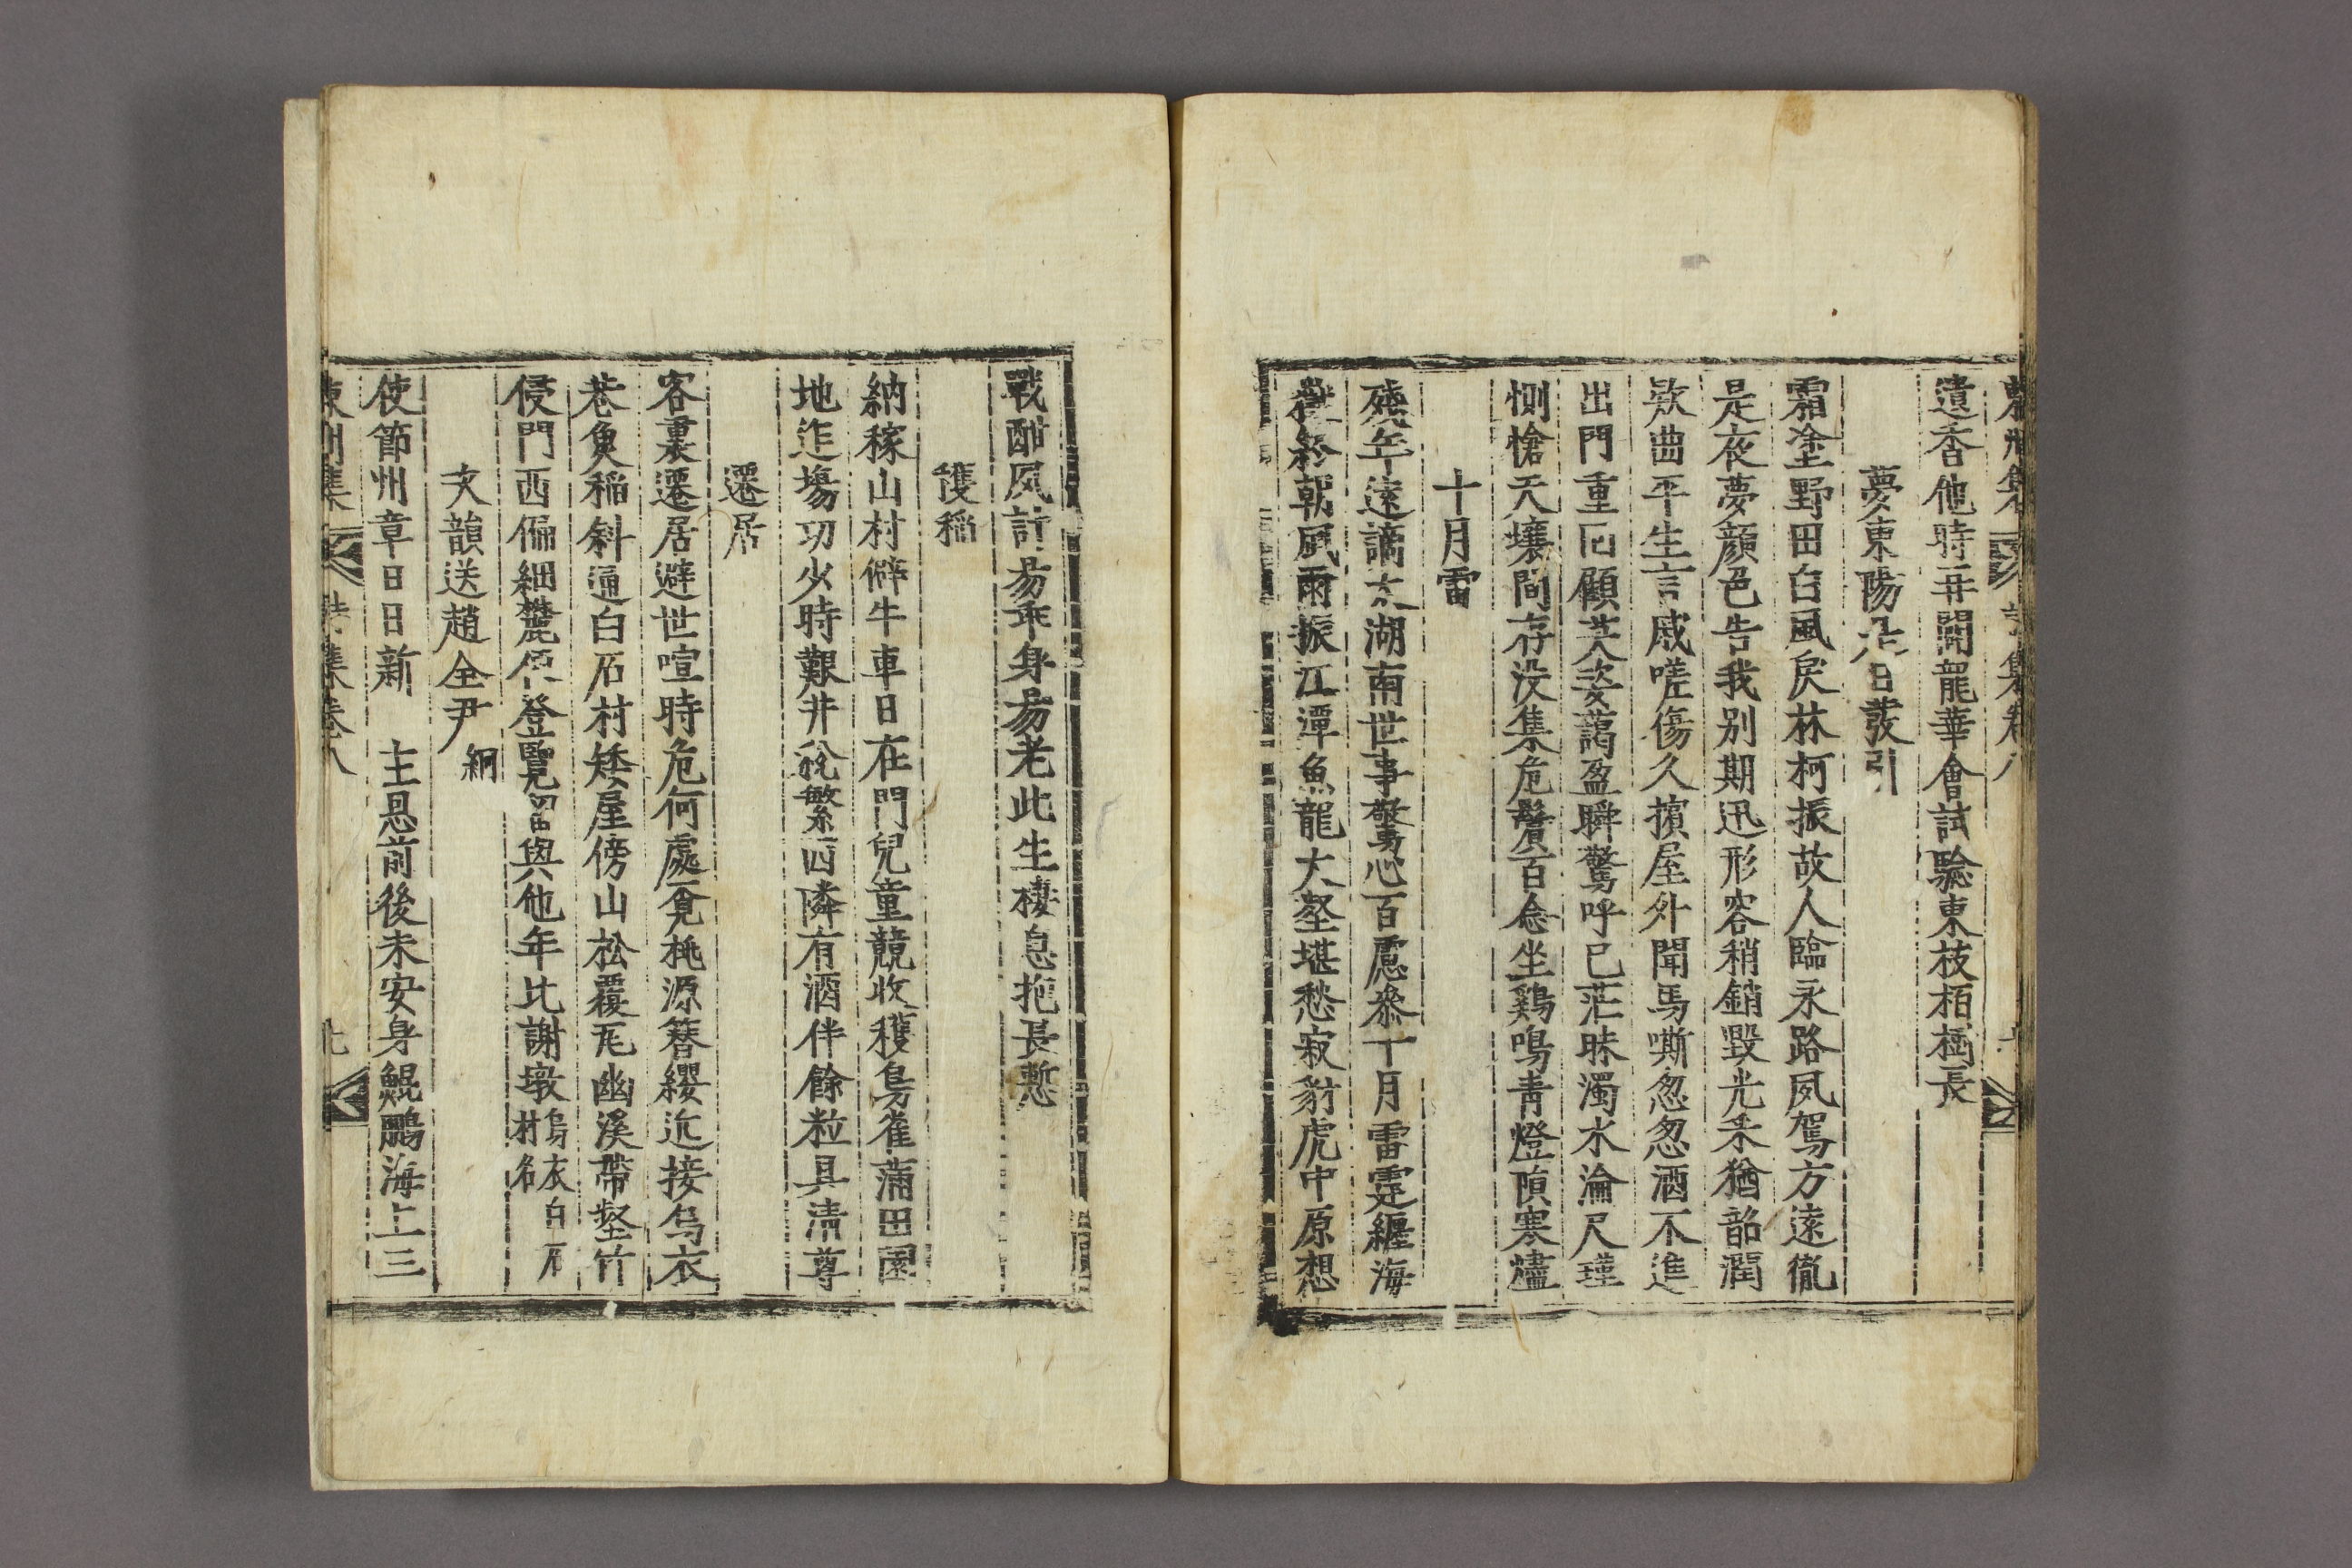 東州集 詩集卷八
遺香他時再闢龍華會試驗東枝栢樹長
夢東陽 是日發引
霜塗野田白風戾林柯振故人臨永路夙駕方遠徹
是夜夢顔色告我别期迅形容稍銷毀光采猶韶潤
欵曲平生言戚嗟傷久擯屋外聞馬嘶忽忽酒不進
出門重回顧英姿藹盈瞬驚呼已茫昧濁水淪尺瑾
惻愴天壤間存没集危鬢百念坐鷄鳴青燈隕寒燼
十月雷
殘年遠謫太湖南世事驚心百慮叅十月雷霆纏海
終朝風雨振江潭魚龍大壑堪愁寂豺虎中原想
戰酣夙計易乖身易老此生棲息抱長慙
穫稲
納稼山村僻牛車日在門兒童競收穫鳥雀滿田園
地迮塲功少時艱井稅繁西隣有酒伴餘粒具清尊
遷居
客裏遷居避世喧時危何處覔桃源簮纓近接烏衣
巷魚稲斜通白石村矮屋傍山松覆瓦幽溪帶壑竹
侵門西偏細麓 登覽留與他年比謝墩 烏衣白石村名
次韻送趙全尹 絅
使節州章日日新 主恩前後未安身鯤鵬海上三
東州集 詩集卷八 七